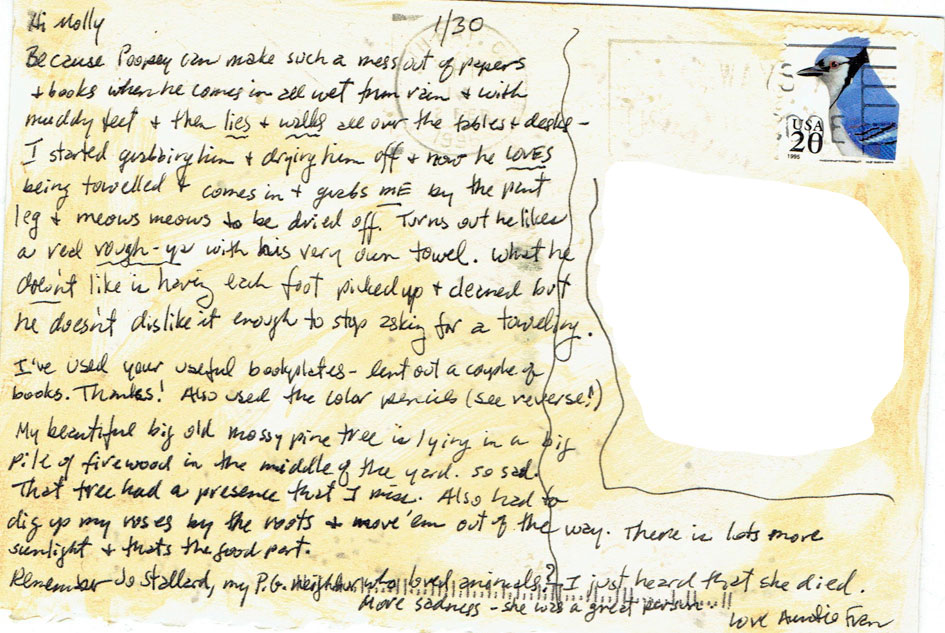 Hi Molly
1/30
Because Poopsy can make such a mess out of papers
+ books when he comes in all wet from rain + with
muddy feet + then lies + walks all over the tables + desks -
I started grabbing him + drying him off + now he LOVES
being towelled + comes in + grabs ME by the pant
leg + meows meows to be dried off. Turns out he likes
a real rough-up with his very own towel. What he
doesn't like is having each foot picked up + cleaned but
he doesn't dislike it enough to stop asking for a toweling.
I've used your useful bookplates - lent out a couple of
books. Thanks! Also used the color pencils (see reverse!)
My beautiful big old mossy pine tree is lying in a big
pile of firewood in the middle of the yard. so sad.
That tree had a presence that I miss. Also had to
dig up my roses by the roots + move 'em out of the way. There is lots more
sunlight + thats the good part.
Remember Jo Stallard, my P.G. neighbor who loved animals? I just heard that she died.
More sadness - she was a great person..
Love Auntie Fran
USA
20
1996